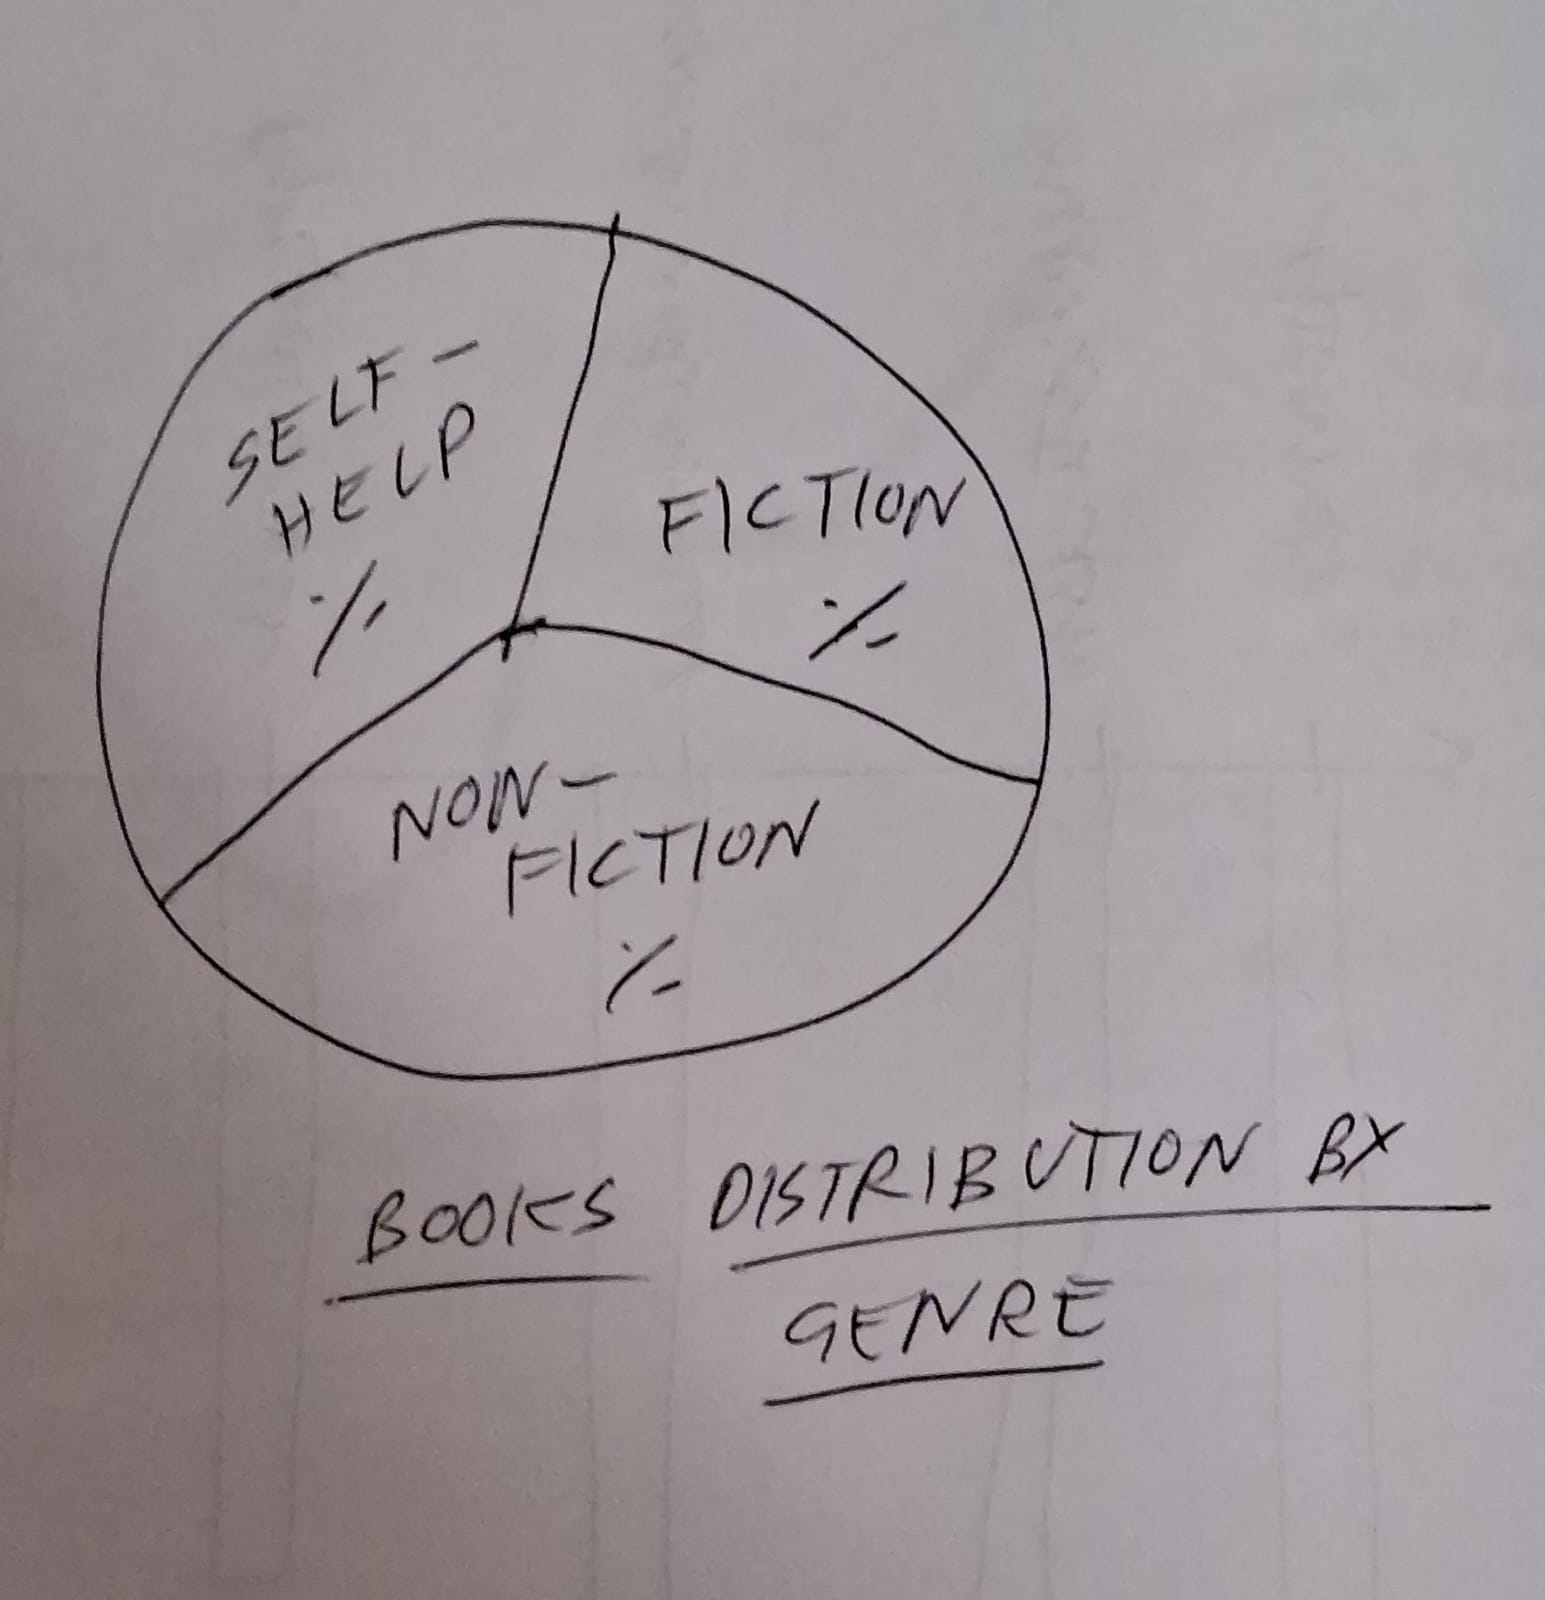 SELF-
HELP
%
FICTION
%
NON-
FICTION
%
BOOKS DISTRIBUTION BY
GENRE